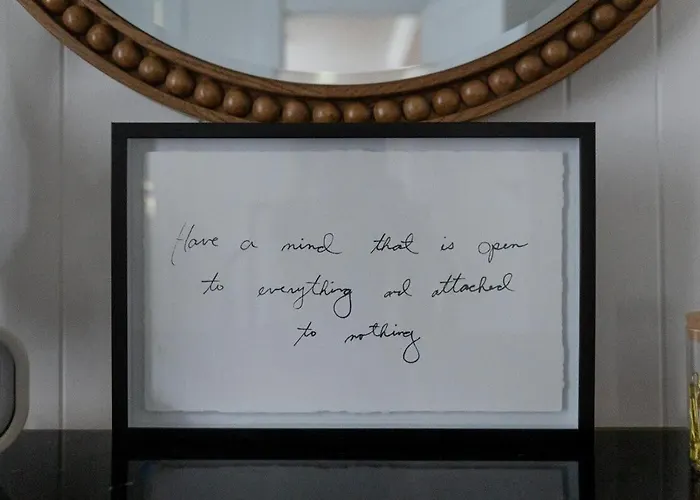 Have a mind that is open
to everything and attached
to nothing